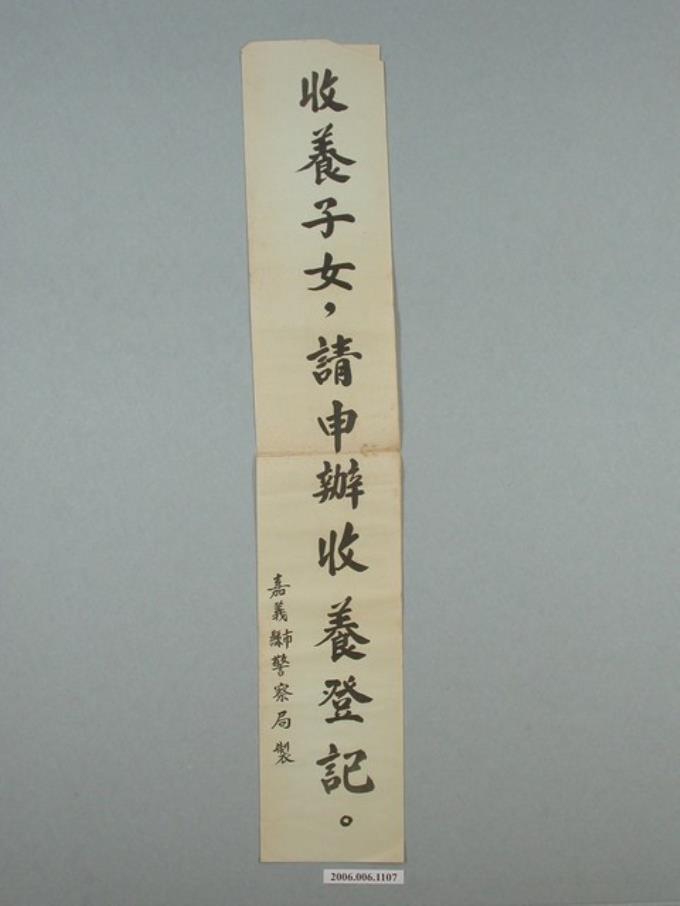 收養子女，請申辦收養登記。
嘉義縣市警察局製
2006.006.1107